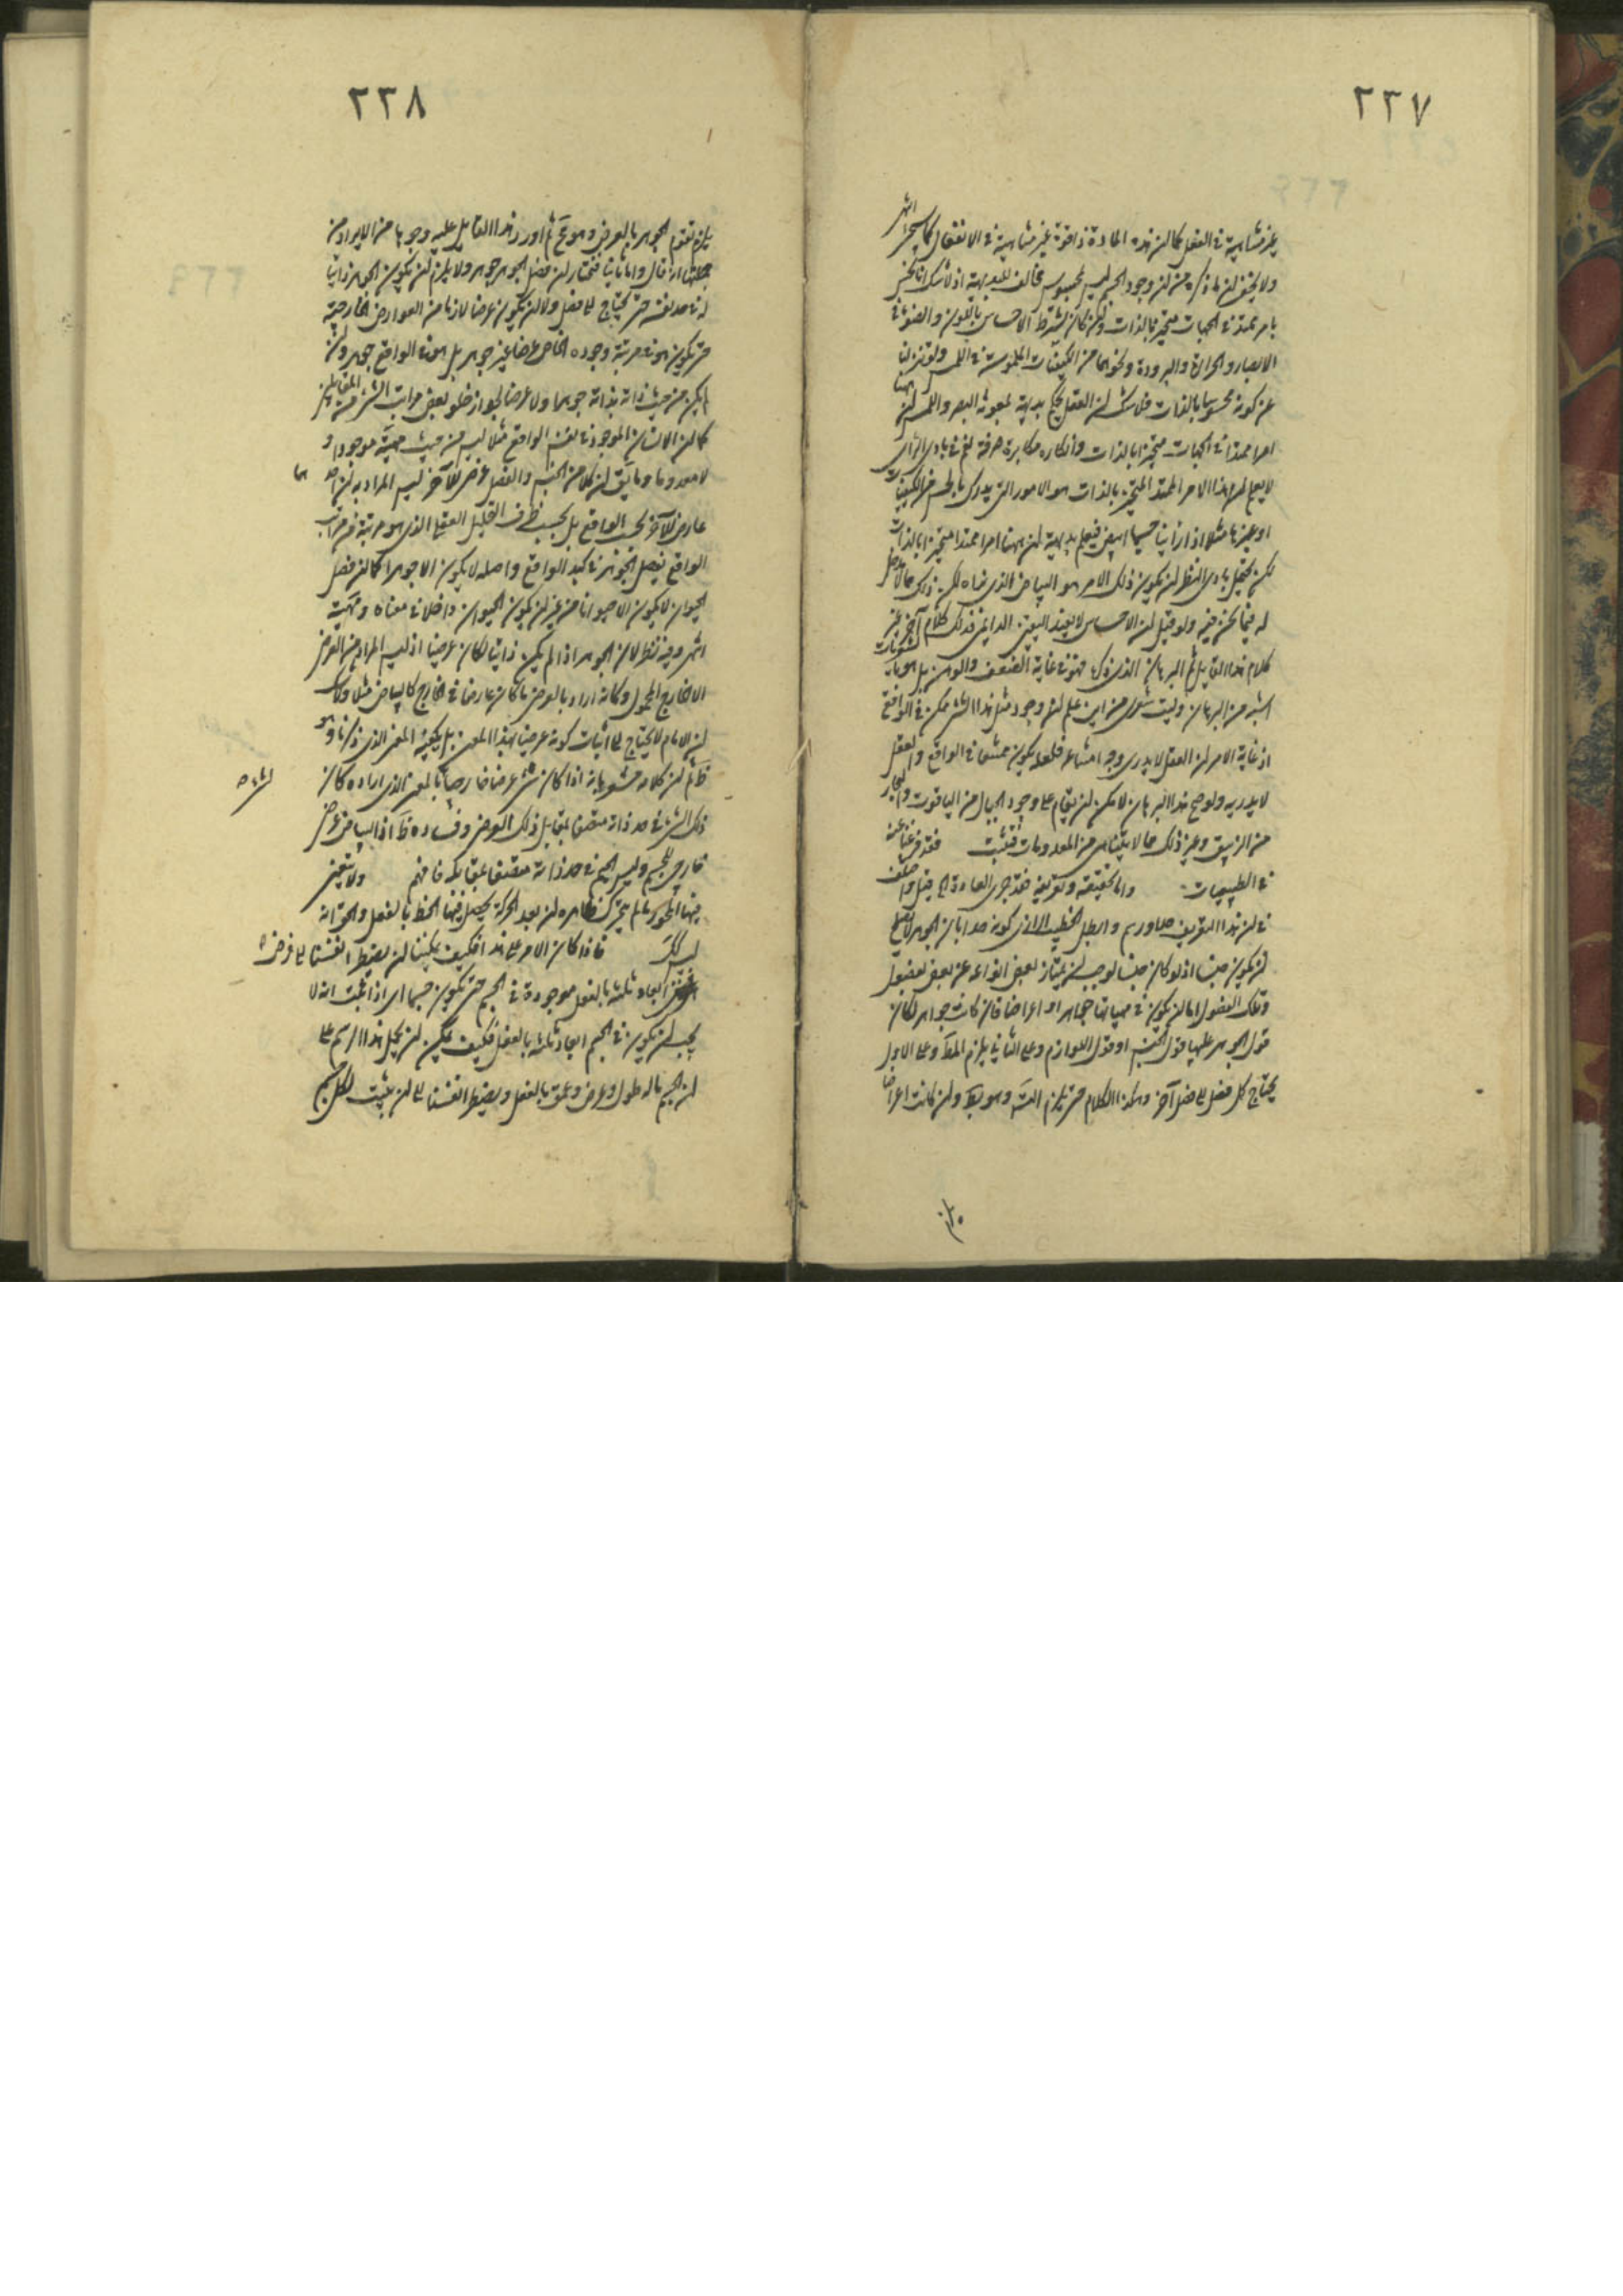 ٢٣٧
غير متناهية في الفعل كما ان هذه المادة ذا قوة غير متناهية في الانفعال كما سيجئ انتهى
ولا يخفى ان ما ذكره من ان وجود الجسم ليس بمحسوس مخالف للبديهة اذ لا شك انا نحس
بامر ممتد في الجهات متحيز بالذات وان كان بشرط الاحساس باللون والضوء في
الابصار والحرارة والبرودة ونحوهما من الكيفيات الملموسة في اللمس ولو تنزلنا
عن كونه محسوسا بالذات فلا شك ان العقل يحكم بديهة بمعونة البصر واللمس ان ههنا
امرا ممتدا في الجهات متحيزا بالذات وانكاره مكابرة صرفة نعم في بادي الراي
لا يعلم ان هذا الامر الممتد المتحيز بالذات هو الامور التي يدرك بالحس من الكيفيات
او غيرها مثلا اذا راينا جسما ابيض فيعلم بديهة ان ههنا امرا ممتدا متحيزا بالذات
لكن يحتمل بادي النظر ان يكون ذلك الامر هو البياض الذي نراه لكن ذلك مما لا دخل
له فيما نحن فيه ولو قيل ان الاحساس لا يفيد اليقين الدايمي فذلك كلام آخر غير
كلام هذا القايل ثم البرهان الذي ذكره فهو في غاية الضعف والوهن بل هو بالشعريات
اشبه من البرهان وليت شعري من اين علم ان وجود مثل هذا الشئ ممكن في الواقع
اذ غاية الامر ان العقل لا يدري وجه امتناعه فلعله يكون ممتنعا في الواقع والعقل
لا يدريه ولو صح هذا البرهان لا مكن ان يقام على وجود الجبال من الياقوت والبحار
من الزيبق وغير ذلك مما لا يتناهى من المعدومات فتثبت فقد فرغنا عنه
في الطبيعيات واما تحقيقه وتعريفه فقد جرى العادة الى قيل واختلف
في ان هذا التعريف حد او رسم وابطل الخطيب الرازي كونه حدا بان الجوهر لا يصلح
ان يكون جنسا اذ لو كان جنسا لوجب ان يمتاز بعض انواعه عن بعض بفصول
وتلك الفصول اما ان يكون في مهياتها جواهر او اعراضا فان كانت جواهر لكان
قول الجوهر عليها قول الجنس او قول اللوازم وعلى الثاني يلزم المط وعلى الاول
يحتاج كل فصل الى فصل آخر وهكذا الكلام حتى يلزم التس وهو بط وان كانت اعراضا
٢٣٨
يلزم تقوم الجوهر بالعرض وهو مح ثم اورد هذا القايل عليه وجوها من الايراد من
جملتها انه قال واما ثانيا فنختار ان فصل الجوهر جوهر ولا يلزم ان يكون الجوهر ذاتيا
له في حد نفسه حتى يحتاج الى فصل ولا ان يكون عرضا لازما من العوارض الخارجية
حتى يكون هو في مرتبة وجوده الخاص عرضا غير جوهر بل هو في الواقع جوهر وان
لم يكن من حيث ذاته بذاته جوهرا ولا عرضا لجواز خلو بعض مراتب الشئ من المتقابلين
كما ان الانسان الموجود في نفس الواقع مثلا ليس من حيث مهيته موجودا و
لا معدوما وما يق ان كلا من الجنس والفصل عرض للآخر ليس المراد به ان احدهما
عارض للآخر بحسب الواقع بل بحسب ظرف التحليل العقلي الذي هو مرتبة من مراتب
الواقع ففصل الجوهر في كبد الواقع واصله لا يكون الا جوهرا كما ان فصل
الحيوان لا يكون الا حيوانا من غير ان يكون الحيوان داخلا في معناه ومهيته
انتهى وفيه نظر لان الجوهر اذا لم يكن ذاتيا لكان عرضيا اذ ليس المراد من العرض
الا الخارج المحمول وكانه اراد بالعرض ما كان عارضا في الخارج كالبياض مثلا ولا شك
ان الامام لا يحتاج الى اثبات كونه عرضيا بهذا المعنى بل يكفيه المعنى الذي ذكرنا وهو
ظ ثم ان كلامه مشعر بانه اذا كان شئ عرضا خارجيا بالمعنى الذي اراده كان لشئ
ذلك الشئ في حد ذاته متصفا بمقابل ذلك العرض وفساده ظ اذ البياض عرض
خارجي للجسم وليس الجسم في حد ذاته متصفا بمقابله فافهم ولا يتعين
فيها المحور ما لم يتحرك ظاهره ان بعد الحركة يحصل فيها الخط بالفعل والحق انه
ليس كذلك فاذا كان الامر على هذا فكيف يمكننا ان يضطر انفسنا الى فرض
ابعاد ثلثة بالفعل موجودة في الجسم حتى يكون جسما اي اذا ثبت انه لا
يجب ان يكون في الجسم ابعاد ثلثة بالفعل فكيف يمكن ان يحمل هذا الرسم على
ان الجسم ما له طول وعرض وعمق بالفعل ويضطر انفسنا الى ان يثبت لكل جسم